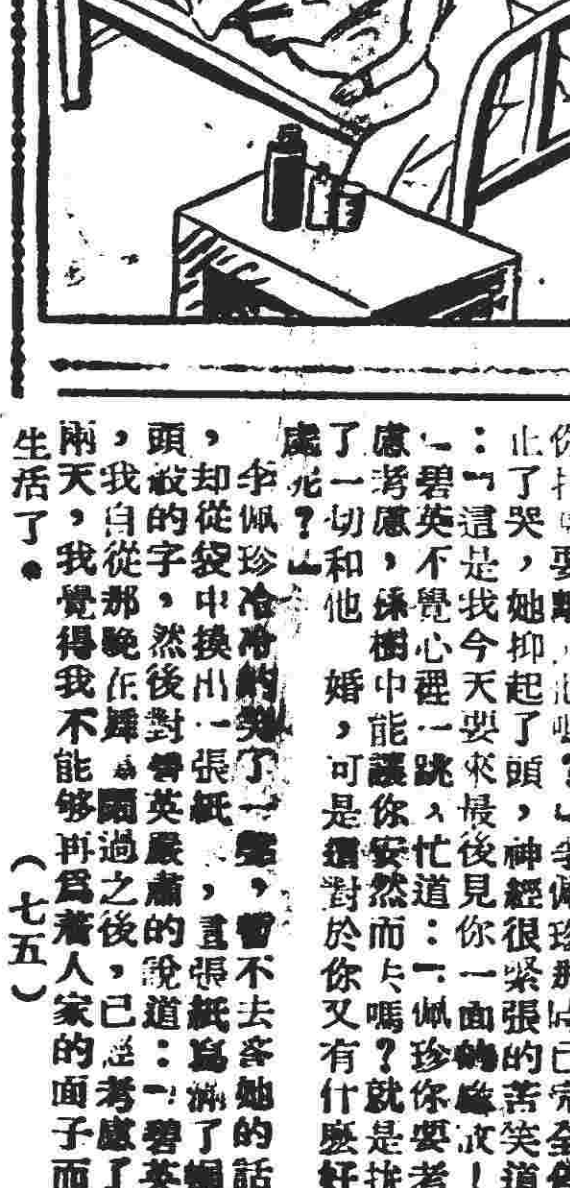 止了哭，她抑起了頭，神經很緊張的苦笑道
：「這是我今天要來最後見你一面的緣故！
」碧英不覺心裡一跳，忙道：「佩珍你要考
慮考慮，孫樹中能讓你安然而去嗎？就是找
了一切和他 婚，可是這對於你又有什麼好
處呢？」
李佩珍冷冷的笑了一聲，暫不去答她的話
，却從袋中換出一張紙，這張紙寫滿了
頭般的字，然後對碧英嚴肅的說道：「碧英
，我自從那晚在舞 鬧過之後，已經考慮了
兩天，我覺得我不能够再爲着人家的面子而
生活了。
（七五）